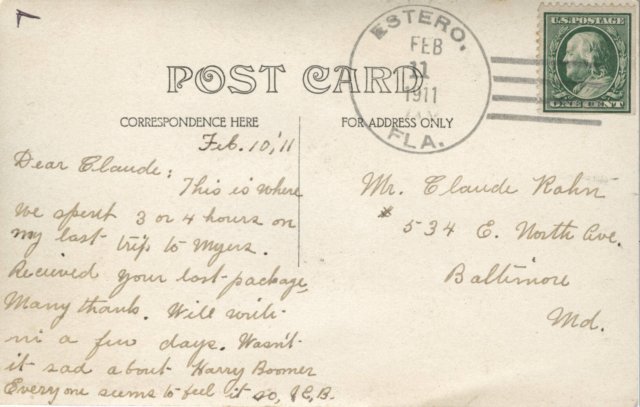 ESTERO.
FEB
11
1911
FLA.
U.S. POSTAGE
ONE CENT
POST CARD
CORRESPONDENCE HERE
FOR ADDRESS ONLY
Feb. 10, '11
Dear Claude:
This is where
we spent 3 or 4 hours on
my last trip to Myers.
Recieved your last package
Many thanks. Will write
in a few days. Wasn't
it sad about Harry Boomer
Everyone seems to feel it so, J.E.B.
Mr. Claude Rahn
534 E. North Ave.
Baltimore
Md.